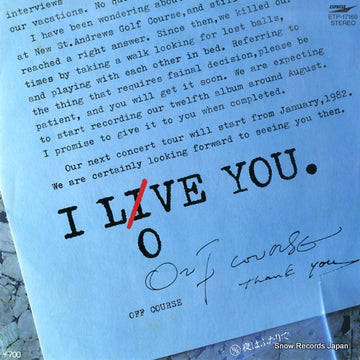 interviews
our vacations. No
I have been wondering about
at New St.Andrews Golf Course, and still
reached a right answer. Since then,we killed our
times by taking a walk looking for lost balls,
and playing with each other in bed. Referring to
the thing that requires fainal decision,please be
patient, and you will get it soon. We are expecting
to start recording our twelfth album around August.
I promise to give it to you when completed.
Our next concert tour will start from January,1982.
We are certainly looking forward to seeing you then.
I LIVE YOU.
O
OFF COURSE
thank you
OFF COURSE
夜はふたりで
¥700
EXPRESS
ETP-17160
STEREO
Snow Records Japan
http://www.snowrecords.jp